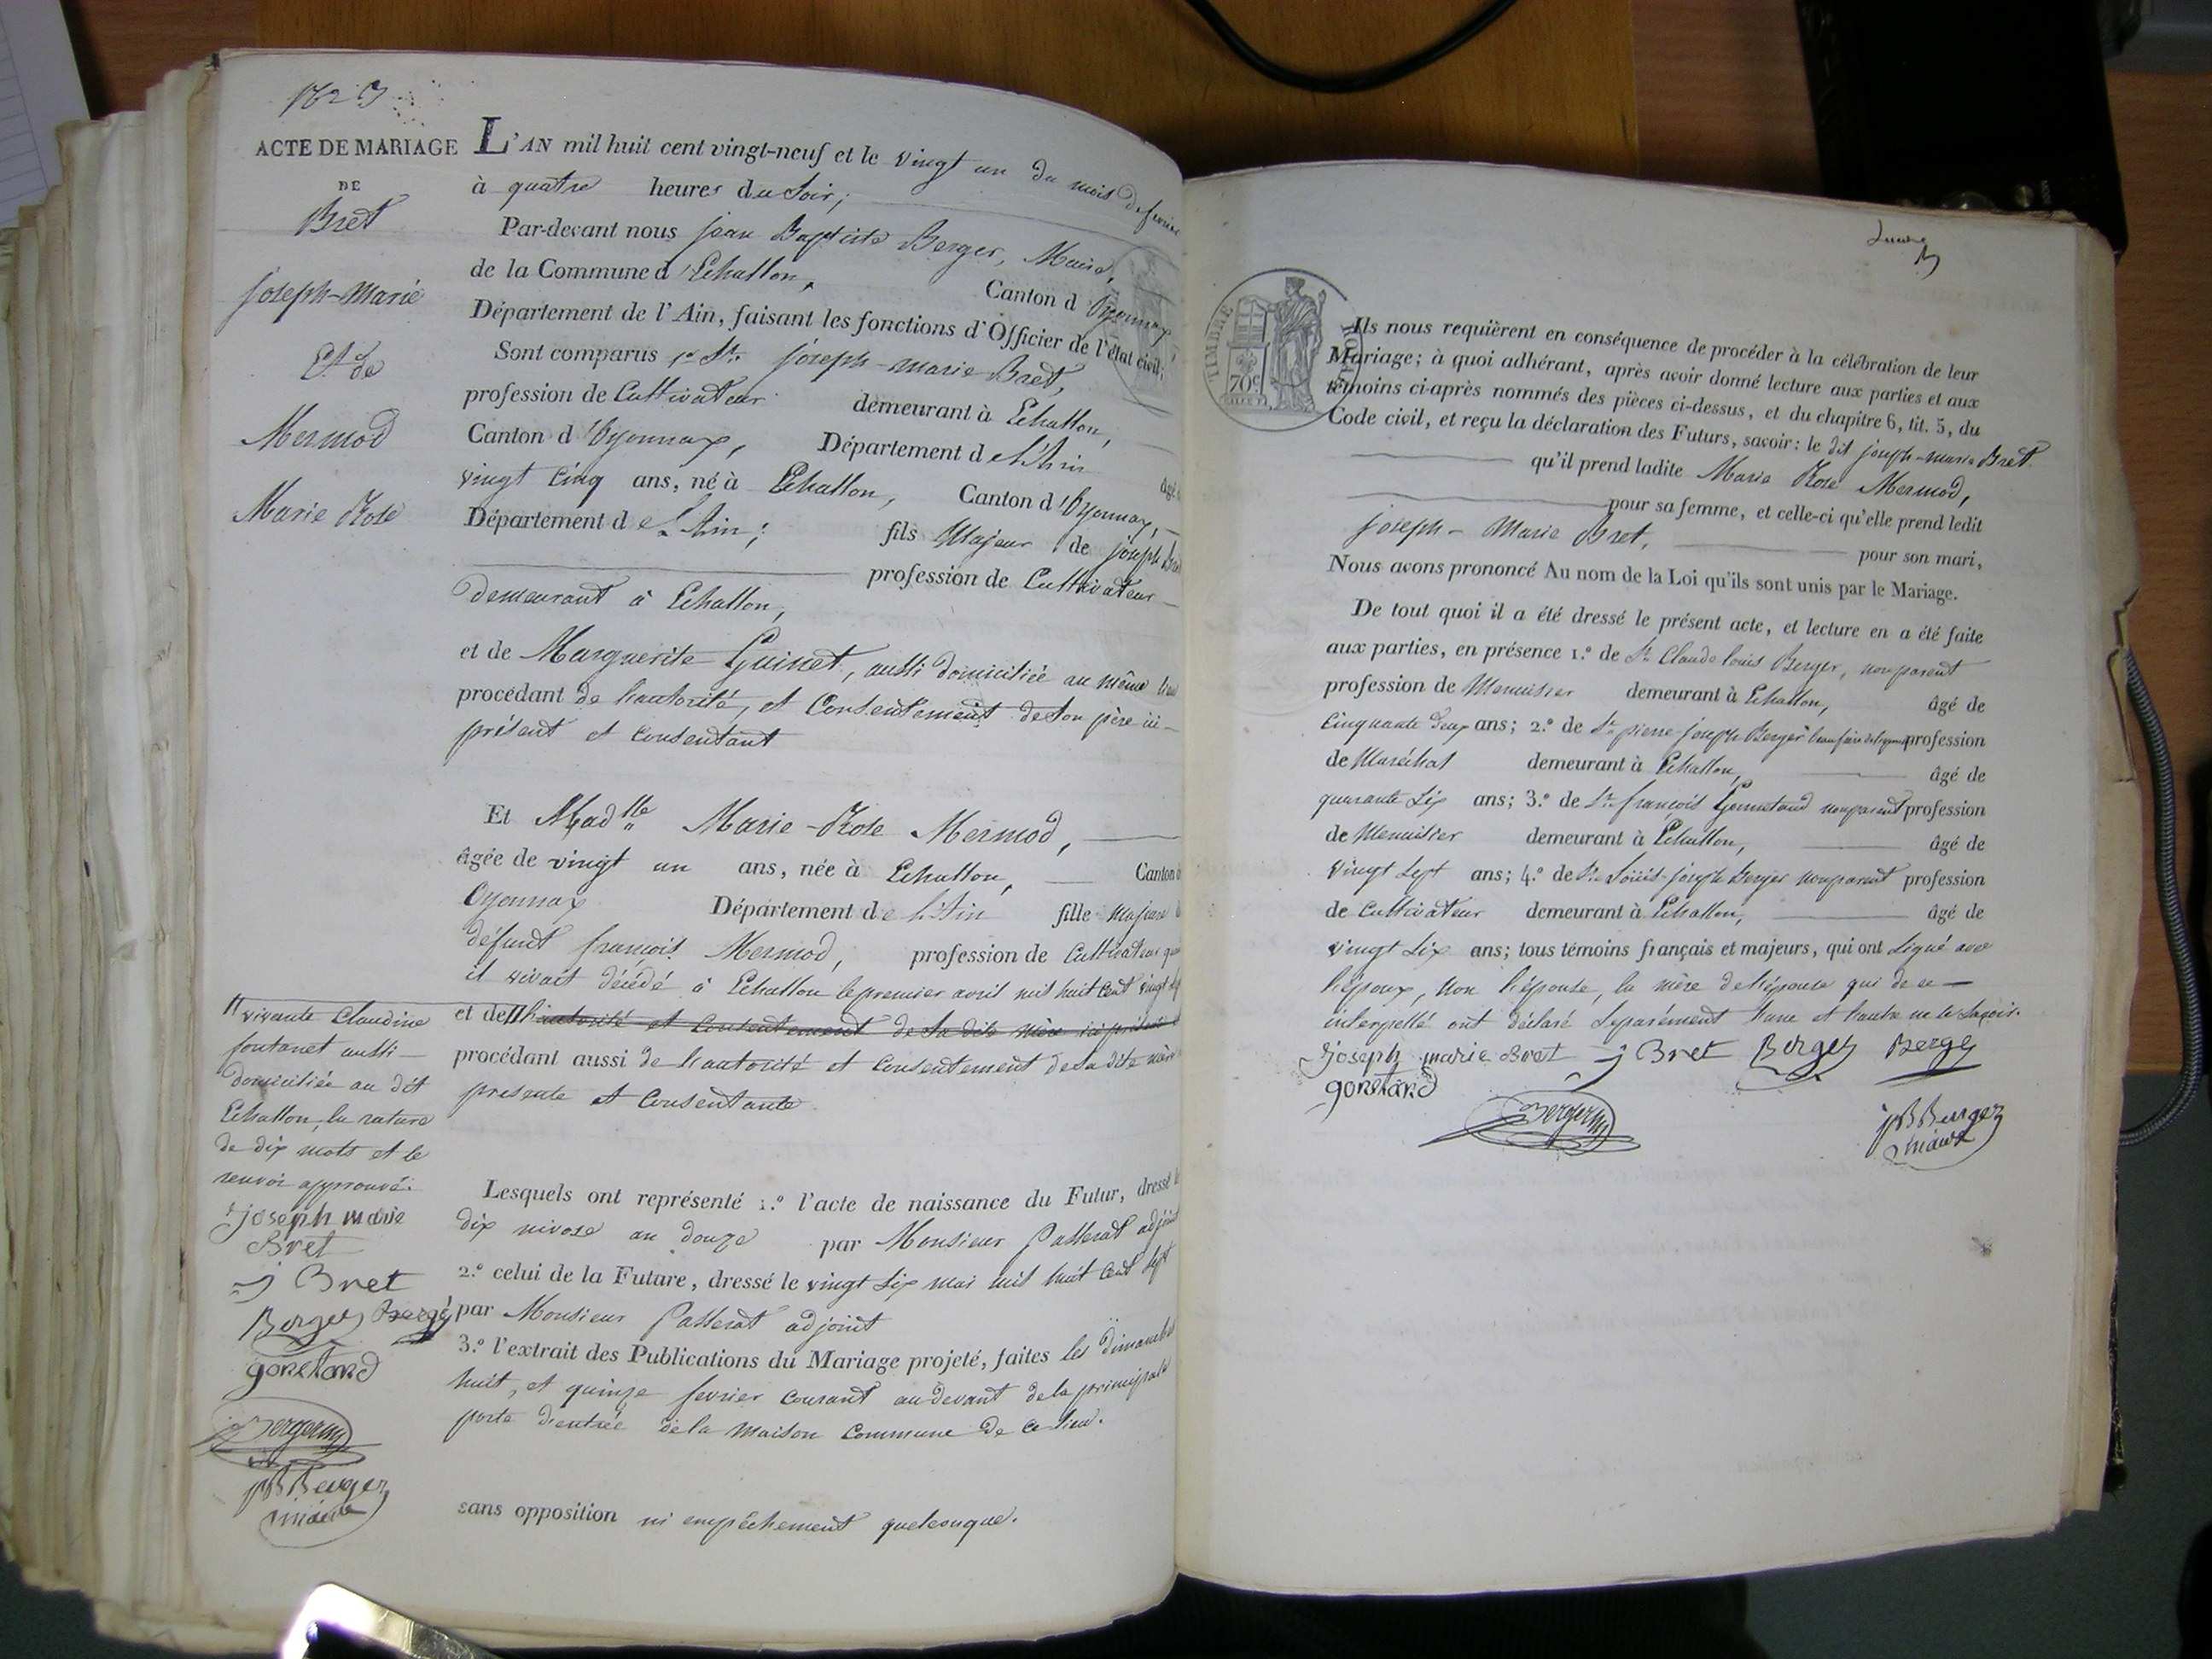 ACTE DE MARIAGE
DE
Bret
Joseph-Marie
Et de
Mermod
Marie Rose
L'AN mil huit cent vingt-neuf et le vingt un du mois de fevrier
à quatre heures du Soir;
Par-devant nous jean Baptiste Berger, Maire,
de la Commune d'Echallon, Canton d'Oyonnax,
Département de l'Ain, faisant les fonctions d'Officier de l'état civil;
Sont comparus 1º Sr. joseph-marie Bret,
profession de Cultivateur demeurant à Echallon,
Canton d'Oyonnax, Département de l'Ain âgé
vingt cinq ans, né à Echallon, Canton d'Oyonnax,
Département de l'Ain; fils Majeur de joseph Bret
profession de Cultivateur
demeurant à Echallon,
et de Marguerite Guinet, aussi domiciliée au même lieu
procédant de l'autorité, et Consentement de son père ici
présent et consentant
Et Madlle Marie-Rose Mermod,
âgée de vingt un ans, née à Echallon, Canton
Oyonnax Département de l'Ain fille majeure
défunt françois Mermod, profession de Cultivateur quand
il vivait décédé à Echallon le premier avril mil huit Cent vingt
et de // l'autorité et Consentement de sa dite mère ici présente
procédant aussi de l'autorité et Consentement de sa dite mère
presente et Consentante
// vivante Claudine
fontanet aussi
domiciliée au dit
Echallon, la rature
de dix mots et le
renvoi approuvé.
joseph marie
Bret
j Bret
Berger Berge
gonetand
jB Berger
maire
Lesquels ont représenté 1.º l'acte de naissance du Futur, dressé le
dix nivose an douze par Monsieur Passerat adjoint
2.º celui de la Future, dressé le vingt six mai mil huit cent sept
par Monsieur Passerat adjoint
3.º l'extrait des Publications du Mariage projeté, faites les dimanches
huit, et quinze fevrier courant au devant de la principale
porte d'entrée de la maison commune de ce lieu.
sans opposition ni empêchement quelconque.
TIMBRE ROYAL
70c
Ils nous requièrent en conséquence de procéder à la célébration de leur
Mariage; à quoi adhérant, après avoir donné lecture aux parties et aux
témoins ci-après nommés des pièces ci-dessus, et du chapitre 6, tit. 5, du
Code civil, et reçu la déclaration des Futurs, savoir: le dit joseph-marie Bret
qu'il prend ladite Marie Rose Mermod,
pour sa femme, et celle-ci qu'elle prend ledit
joseph-Marie Bret, pour son mari,
Nous avons prononcé Au nom de la Loi qu'ils sont unis par le Mariage.
De tout quoi il a été dressé le présent acte, et lecture en a été faite
aux parties, en présence 1.º de Sr. Claude louis Berger, non parent
profession de Menuisier demeurant à Echallon, âgé de
cinquante deux ans; 2.º de Sr. pierre joseph Berger beau frère de l'epoux profession
de Maréchal demeurant à Echallon, âgé de
quarante six ans; 3.º de Sr. françois Gonnetand non parent profession
de Menuisier demeurant à Echallon, âgé de
vingt sept ans; 4.º de Sr. Louis-joseph Berger non parent profession
de cultivateur demeurant à Echallon, âgé de
vingt six ans; tous témoins français et majeurs, qui ont signé avec
l'époux, non l'épouse, la mère de l'épouse qui de ce
interpellé ont déclaré séparément l'une et l'autre ne le savoir.
joseph marie Bret j Bret Berger Berge
gonetand
jB Berger
maire